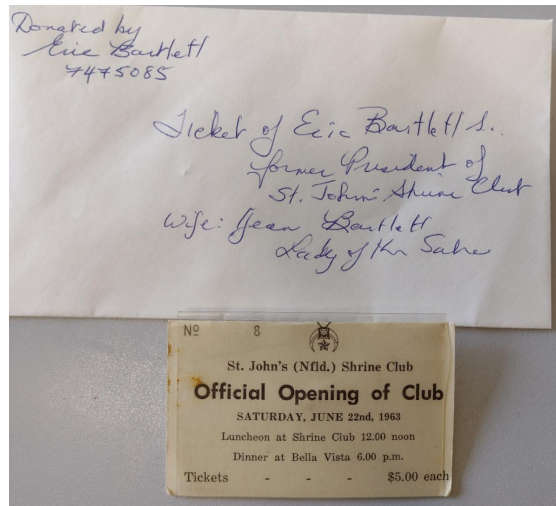 Donated by
Eric Bartlett
7475085
Ticket of Eric Bartlett S..
former President of
St. John's Shrine Club
Wife: Jean Bartlett
Lady of the
Nº 8
St. John's (Nfld.) Shrine Club
Official Opening of Club
SATURDAY, JUNE 22nd, 1963
Luncheon at Shrine Club 12.00 noon
Dinner at Bella Vista 6.00 p.m.
Tickets - - - $5.00 each